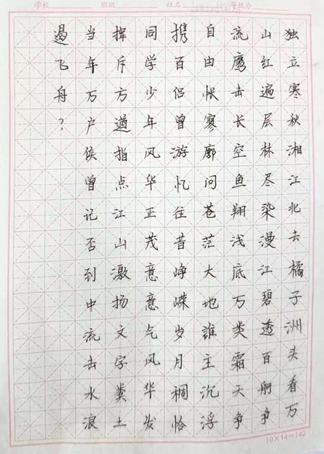 学校 班级 姓名
独立寒秋湘江北去橘子洲头看万
山红遍层林尽染漫江碧透百舸争
流鹰击长空鱼翔浅底万类霜天争
自由怅寥廓问苍茫大地谁主沉浮
携百侣曾游忆往昔峥嵘岁月稠恰
同学少年风华正茂意意气风华发
挥斥方遒指点江山激扬文字粪土
当年万户侯曾记否到中流击水浪
遏飞舟？
10×14=140